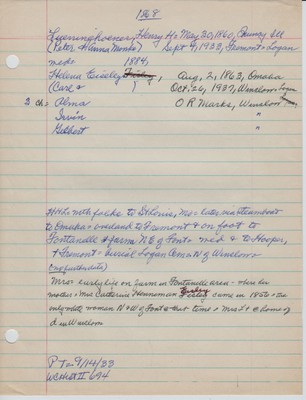 1868
Luerringhoener, Henry H = May 30, 1860, Quincy Ill
(Peter & Hanna Monke) Sept 9, 1933, Fremont = Logan
med = 1884,
Helena Eicley, Aug, 2, 1863, Omaha
(Carl & ) Oct, 26, 1937, Winslow =
2 Ch = Alma O R Marks, Winslow
Irvin "
Gilbert "
HHL with folks to St Louis, Mo = later via Steamboat
to Omaha = overland to Fremont + on foot to
Fontanelle & farm N.E of Font = med & to Hooper,
+ Fremont = burial Logan Cem N of Winslow
(
Mrs = early life on farm in Fontanelle area = when her
mother = Mrs Catherine Henneman came in 1856 = the
only white woman N & W of Font @ that time + Mrs L + @ home of
d in Winslow
P T = 9/14/33
WCHist II 694